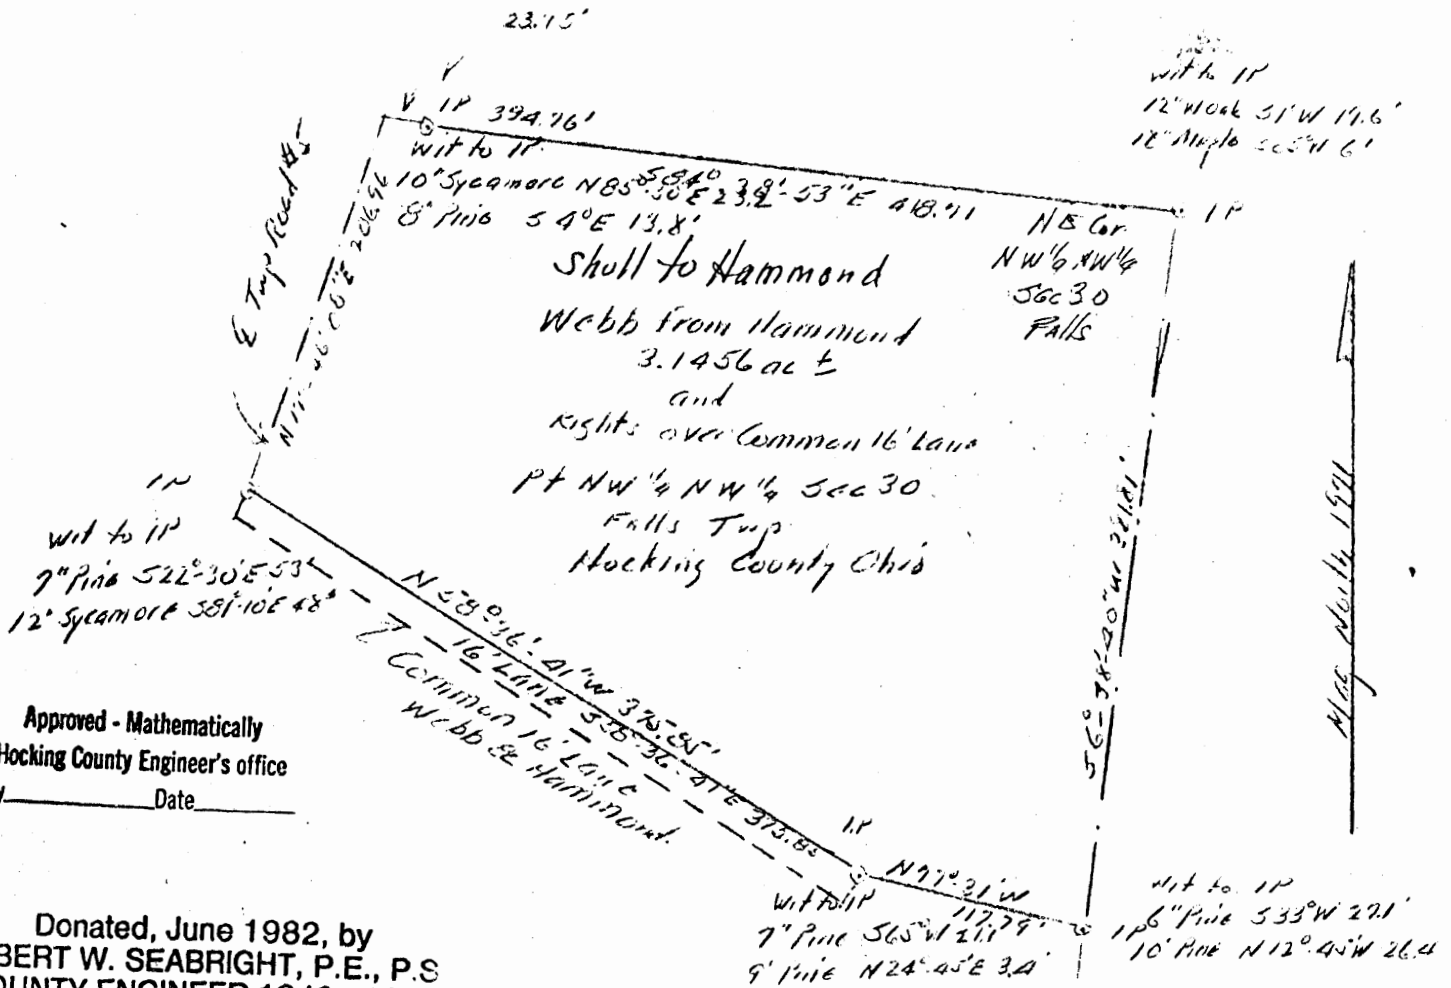 23.95'
V
V IP 394.76'
Wit to IP
10" Sycamore N85°-30'E 23.2
8" Pine S 4°E 13.8'
S84° 38'-53"E 418.71
wit to IP
12" W Oak S1°W 17.6'
12" Maple 6'
IP
NE Cor.
NW¼ NW¼
Sec 30
Falls
℄ Twp Road #5
206.96
Shull to Hammond
Webb from Hammond
3.1456 ac ±
and
Rights over Common 16' Lane
Pt NW ¼ NW ¼ Sec 30
Falls Twp
Hocking County Ohio
S6°-38'-40"W 321.81'
Mag North 1971
IP
wit to IP
7" Pine S22°-30'E 53'
12" Sycamore S81°-10'E 48'
N 58°-36'-41"W 375.85'
16' Lane S58°-36'-41"E 375.85
Common 16' Lane
Webb & Hammond.
Approved - Mathematically
Hocking County Engineer's office
Date
I.P
N77°-31'W
117.79'
wit to IP
7" Pine S65°W 21.1
9" Pine N24°-45'E 3.4'
IP
Wit to IP
6" Pine S33°W 27.1'
10" Pine N12°-45'W 26.4
Donated, June 1982, by
BERT W. SEABRIGHT, P.E., P.S
OUNTY ENGINEER